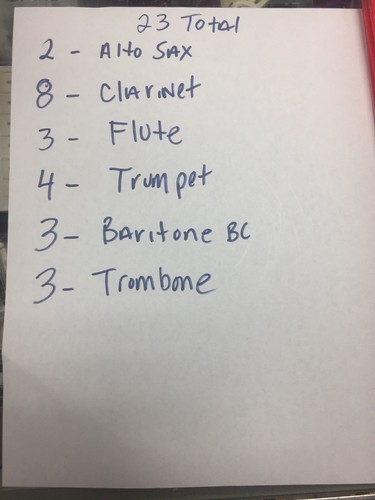 23 Total
2 - Alto Sax
8 - Clarinet
3 - Flute
4 - Trumpet
3 - Baritone BC
3 - Trombone